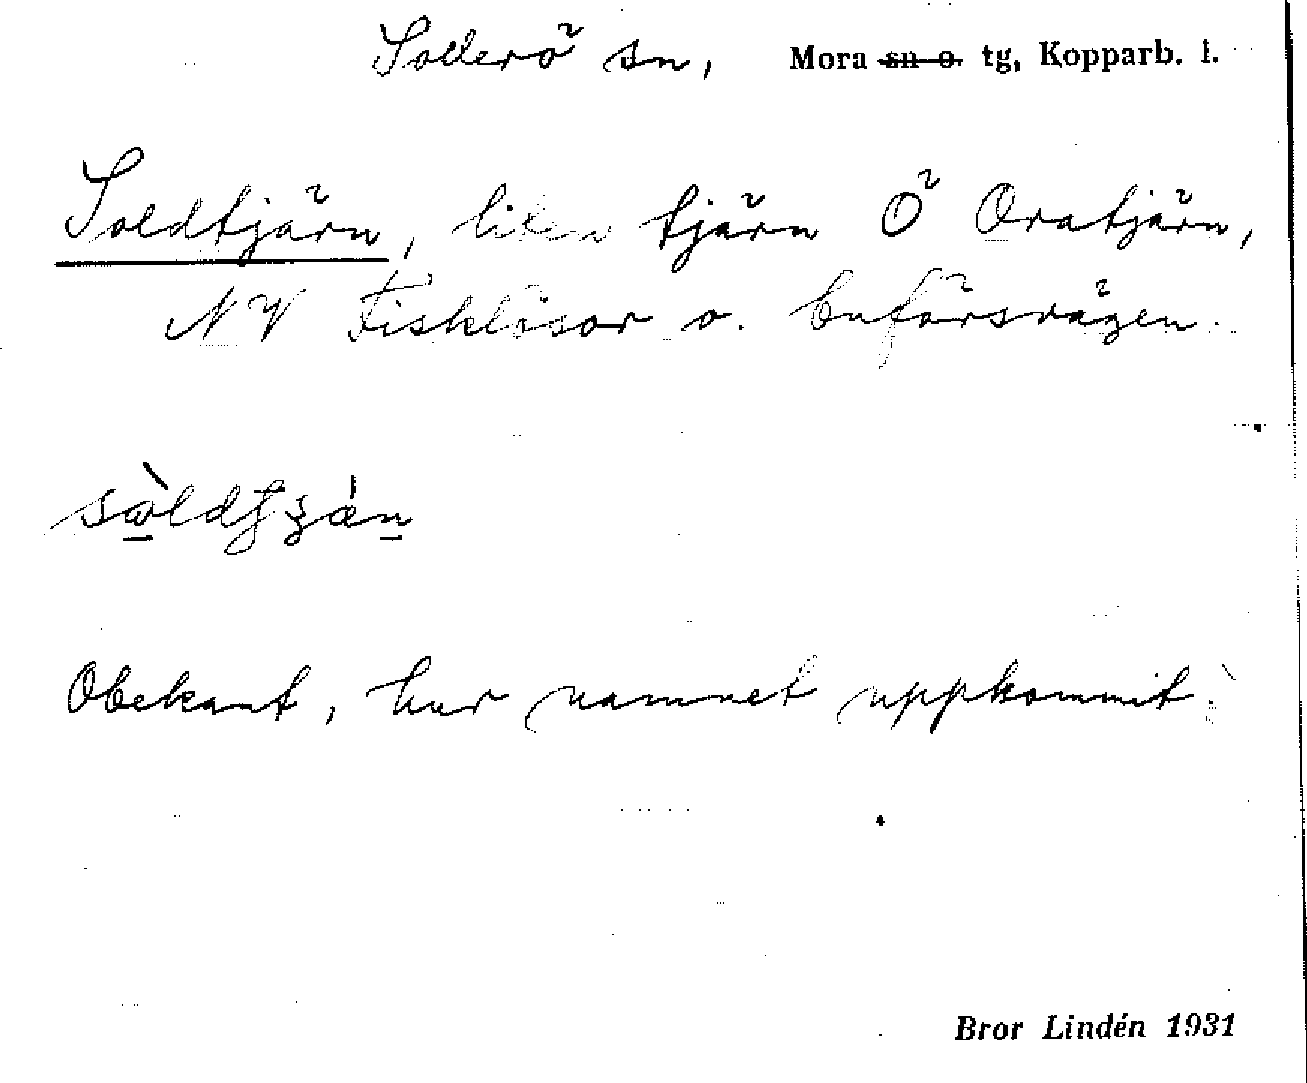 Sollerö sn, Mora sn o. tg, Kopparb. l.
Soldtjärn, liten tjärn Ö Oratjärn,
NV Fisklösor o. buförsvägen.
Obekant, hur namnet uppkommit.
Bror Lindén 1931